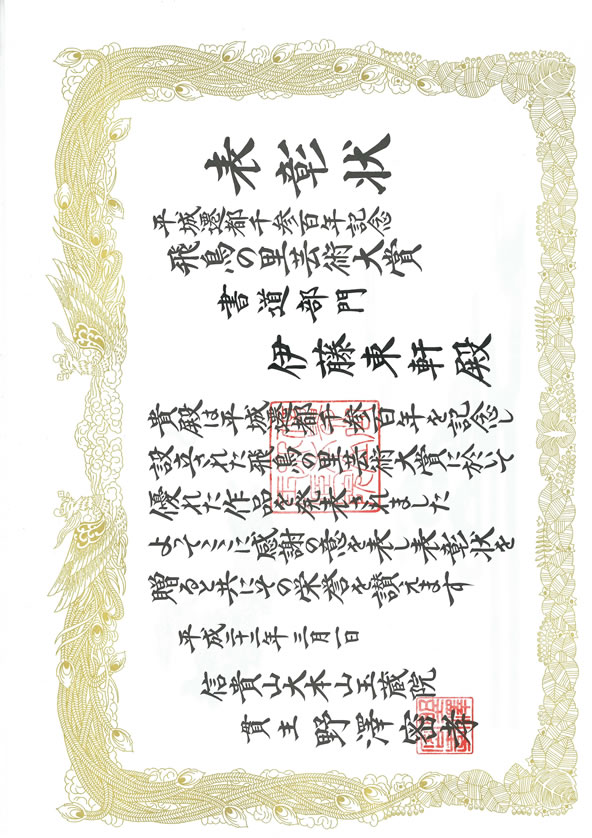 表彰状
平城遷都千参百年記念
飛鳥の里芸術大賞
書道部門
伊藤東軒殿
貴殿は平城遷都千参百年を記念し
設立された飛鳥の里芸術大賞に於いて
優れた作品を発表されました
よってここに感謝の意を表し表彰状を
贈ると共にその栄誉を讃えます
平成二十二年三月一日
信貴山大本山玉蔵院
貫主 野澤密孝